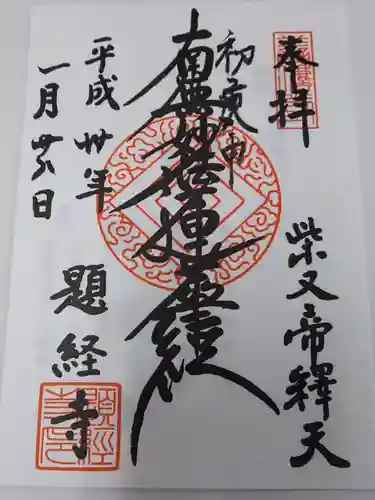 奉拝
柴又帝釋天
初庚申
南無妙法蓮華経
平成卅年
一月廿八日
題経寺